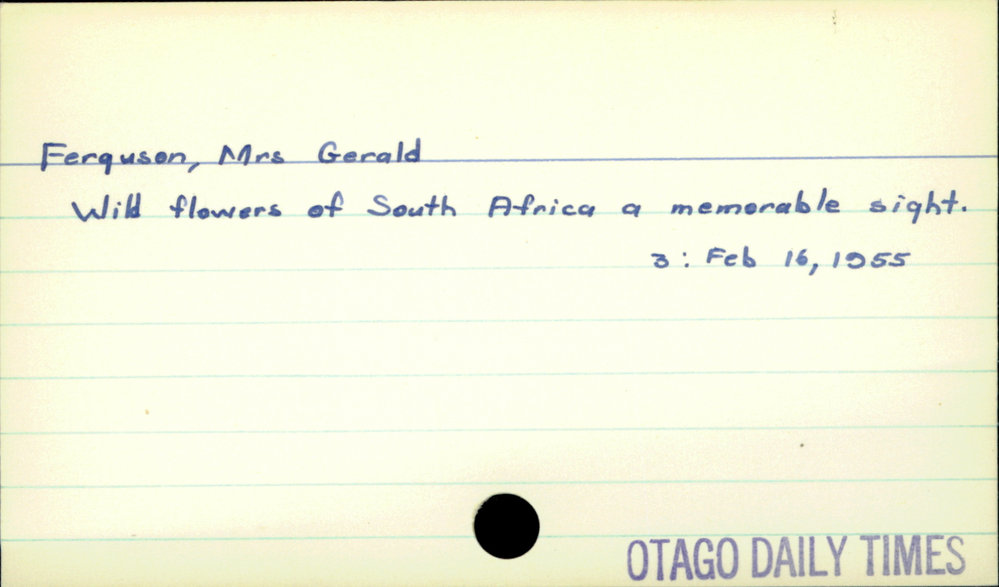 Ferguson, Mrs Gerald
Wild flowers of South Africa a memorable sight.
3: Feb 16, 1955
OTAGO DAILY TIMES